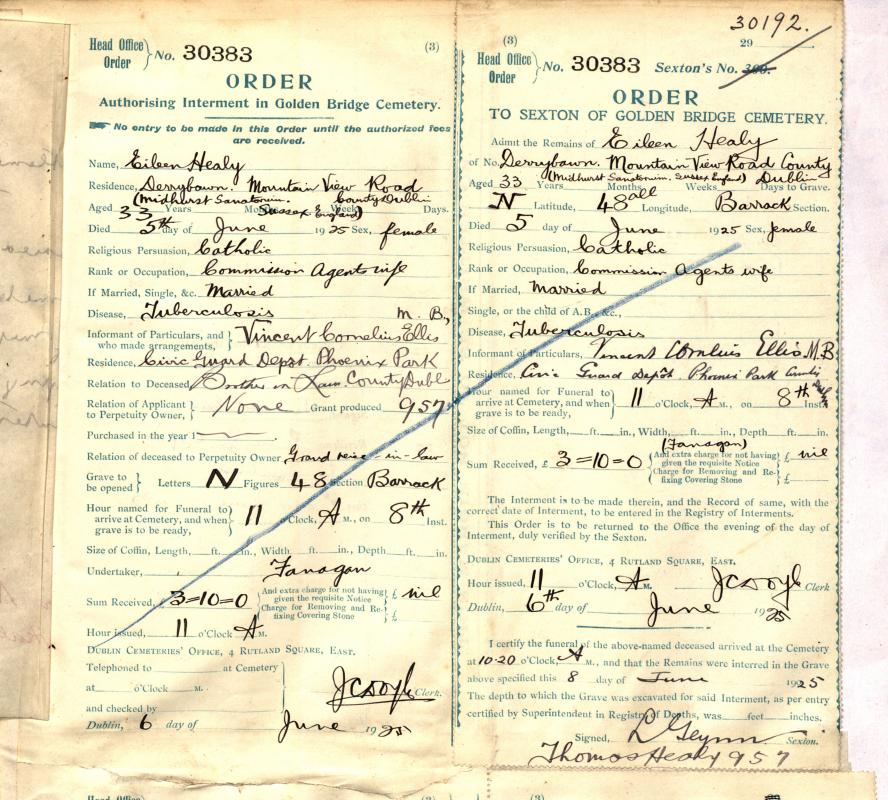 Head Office Order } No. 30383 (3)
ORDER
Authorising Interment in Golden Bridge Cemetery.
No entry to be made in this Order until the authorized fees are received.
Name, Eileen Healy
Residence, Derrybawn. Mountain View Road
(Midhurst Sanatorium. Sussex England) County Dublin
Aged 33 Years Months Weeks Days.
Died 5th day of June 1925 Sex, female
Religious Persuasion, Catholic
Rank or Occupation, Commission Agents wife
If Married, Single, &c. Married
Disease, Tuberculosis M.B,
Informant of Particulars, and who made arrangements, } Vincent Cornelius Ellis
Residence, Civic Guard Depôt. Phoenix Park
Relation to Deceased Brother in Law. County Dubl
Relation of Applicant to Perpetuity Owner } None Grant produced 957
Purchased in the year 1
Relation of deceased to Perpetuity Owner, Grand neice-in-law
Grave to be opened } Letters N Figures 48 Section Barrack
Hour named for Funeral to arrive at Cemetery, and when grave is to be ready, } 11 o'Clock, A M., on 8th Inst.
Size of Coffin, Length, ft. in., Width ft. in., Depth ft. in.
Undertaker, Fanagan
Sum Received, £ 3=10=0 { And extra charge for not having given the requisite Notice £ nil
Charge for Removing and Re-fixing Covering Stone } £
Hour issued, 11 o'Clock A M.
DUBLIN CEMETERIES' OFFICE, 4 RUTLAND SQUARE, EAST.
Telephoned to at Cemetery
at o'Clock M.
and checked by
JCDoyle Clerk.
Dublin, 6 day of June 1925
30192.
(3) 29
Head Office Order } No. 30383 Sexton's No. 300.
ORDER
TO SEXTON OF GOLDEN BRIDGE CEMETERY.
Admit the Remains of Eileen Healy
of No. Derrybawn. Mountain View Road County
(Midhurst Sanatorium. Sussex England) Dublin
Aged 33 Years Months Weeks Days to Grave.
N Latitude, 48 all Longitude, Barrack Section.
Died 5 day of June 1925 Sex, female
Religious Persuasion, Catholic
Rank or Occupation, Commission Agents wife
If Married, Married
Single, or the child of A.B., &c.,
Disease, Tuberculosis
Informant of Particulars, Vincent Cornelius Ellis M.B.
Residence, Civic Guard Depôt. Phoenix Park
Hour named for Funeral to arrive at Cemetery, and when grave is to be ready, } 11 o'Clock, A M., on 8th Inst.
Size of Coffin, Length, ft. in., Width, ft. in., Depth ft. in.
(Fanagan)
Sum Received, £ 3=10=0 { And extra charge for not having given the requisite Notice £ nil
Charge for Removing and Re-fixing Covering Stone } £
The Interment is to be made therein, and the Record of same, with the correct date of Interment, to be entered in the Registry of Interments.
This Order is to be returned to the Office the evening of the day of Interment, duly verified by the Sexton.
DUBLIN CEMETERIES' OFFICE, 4 RUTLAND SQUARE, EAST.
Hour issued, 11 o'Clock, A M. JCDoyle Clerk
Dublin, 6th day of June 1925
I certify the funeral of the above-named deceased arrived at the Cemetery
at 10.20 o'Clock, A M., and that the Remains were interred in the Grave
above specified this 8 day of June 1925
The depth to which the Grave was excavated for said Interment, as per entry
certified by Superintendent in Registry of Depths, was feet inches.
Signed, Sexton.
Thomas Healy 957
Head Office (2) (3)